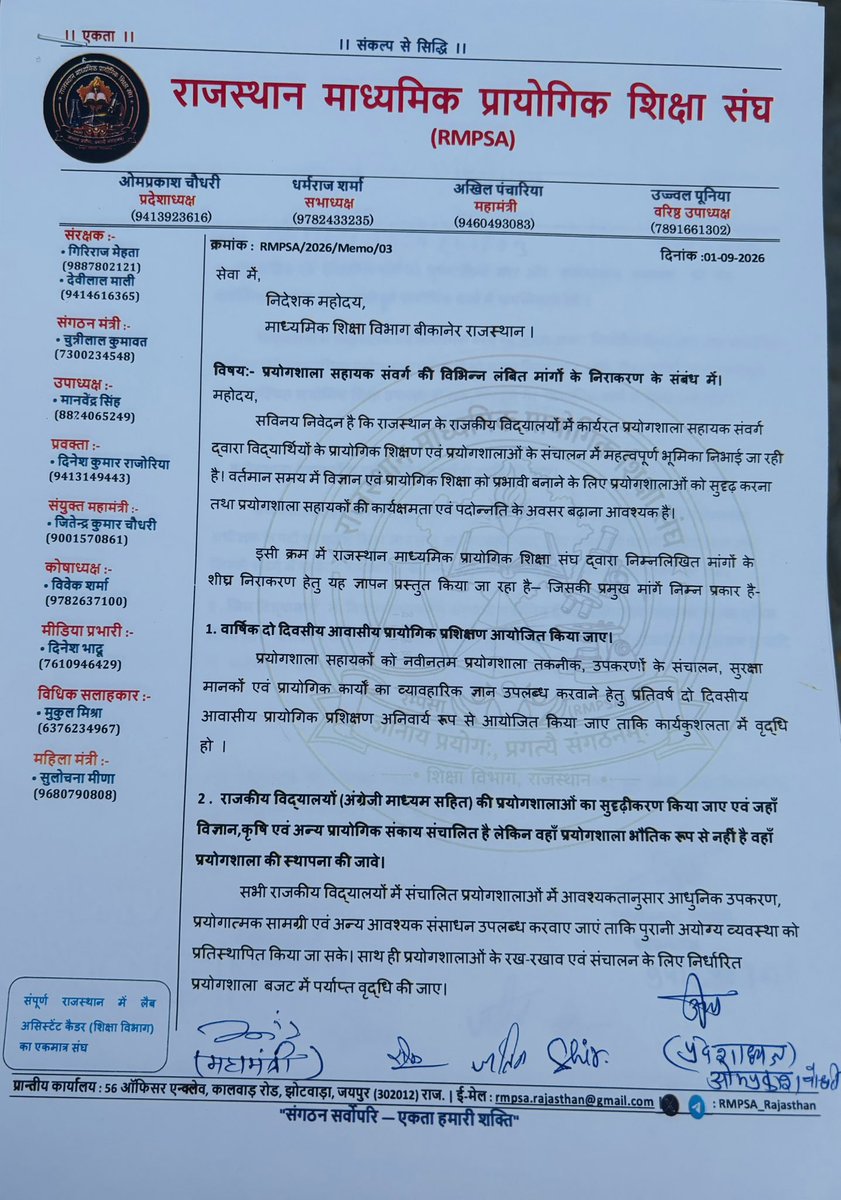 ।। एकता ।।
।। संकल्प से सिद्धि ।।
राजस्थान माध्यमिक प्रायोगिक शिक्षा संघ
(RMPSA)
ओमप्रकाश चौधरी
प्रदेशाध्यक्ष
(9413923616)
धर्मराज शर्मा
सभाध्यक्ष
(9782433235)
अखिल पंचारिया
महामंत्री
(9460493083)
उज्ज्वल पूनिया
वरिष्ठ उपाध्यक्ष
(7891661302)
संरक्षक :-
• गिरिराज मेहता
(9887802121)
• देवीलाल माली
(9414616365)
संगठन मंत्री :-
• चुन्नीलाल कुमावत
(7300234548)
उपाध्यक्ष :-
• मानवेंद्र सिंह
(8824065249)
प्रवक्ता :-
• दिनेश कुमार राजोरिया
(9413149443)
संयुक्त महामंत्री :-
• जितेन्द्र कुमार चौधरी
(9001570861)
कोषाध्यक्ष :-
• विवेक शर्मा
(9782637100)
मीडिया प्रभारी :-
• दिनेश भादू
(7610946429)
विधिक सलाहकार :-
• मुकुल मिश्रा
(6376234967)
महिला मंत्री :-
• सुलोचना मीणा
(9680790808)
संपूर्ण राजस्थान में लैब
असिस्टेंट कैडर (शिक्षा विभाग)
का एकमात्र संघ
क्रमांक : RMPSA/2026/Memo/03
दिनांक :01-09-2026
सेवा में,
निदेशक महोदय,
माध्यमिक शिक्षा विभाग बीकानेर राजस्थान ।
विषय:- प्रयोगशाला सहायक संवर्ग की विभिन्न लंबित मांगों के निराकरण के संबंध में।
महोदय,
सविनय निवेदन है कि राजस्थान के राजकीय विद्यालयों में कार्यरत प्रयोगशाला सहायक संवर्ग
द्वारा विद्यार्थियों के प्रायोगिक शिक्षण एवं प्रयोगशालाओं के संचालन में महत्वपूर्ण भूमिका निभाई जा रही
है। वर्तमान समय में विज्ञान एवं प्रायोगिक शिक्षा को प्रभावी बनाने के लिए प्रयोगशालाओं को सुदृढ़ करना
तथा प्रयोगशाला सहायकों की कार्यक्षमता एवं पदोन्नति के अवसर बढ़ाना आवश्यक है।
इसी क्रम में राजस्थान माध्यमिक प्रायोगिक शिक्षा संघ द्वारा निम्नलिखित मांगों के
शीघ्र निराकरण हेतु यह ज्ञापन प्रस्तुत किया जा रहा है– जिसकी प्रमुख मांगें निम्न प्रकार है-
1. वार्षिक दो दिवसीय आवासीय प्रायोगिक प्रशिक्षण आयोजित किया जाए।
प्रयोगशाला सहायकों को नवीनतम प्रयोगशाला तकनीक, उपकरणों के संचालन, सुरक्षा
मानकों एवं प्रायोगिक कार्यों का व्यावहारिक ज्ञान उपलब्ध करवाने हेतु प्रतिवर्ष दो दिवसीय
आवासीय प्रायोगिक प्रशिक्षण अनिवार्य रूप से आयोजित किया जाए ताकि कार्यकुशलता में वृद्धि
हो ।
• शिक्षा विभाग, राजस्थान •
2 . राजकीय विद्यालयों (अंग्रेजी माध्यम सहित) की प्रयोगशालाओं का सुदृढ़ीकरण किया जाए एवं जहाँ
विज्ञान,कृषि एवं अन्य प्रायोगिक संकाय संचालित है लेकिन वहाँ प्रयोगशाला भौतिक रूप से नहीं है वहाँ
प्रयोगशाला की स्थापना की जावे।
सभी राजकीय विद्यालयों में संचालित प्रयोगशालाओं में आवश्यकतानुसार आधुनिक उपकरण,
प्रयोगात्मक सामग्री एवं अन्य आवश्यक संसाधन उपलब्ध करवाए जाएं ताकि पुरानी अयोग्य व्यवस्था को
प्रतिस्थापित किया जा सके। साथ ही प्रयोगशालाओं के रख-रखाव एवं संचालन के लिए निर्धारित
प्रयोगशाला बजट में पर्याप्त वृद्धि की जाए।
(महामंत्री)
(प्रदेशाध्यक्ष)
प्रान्तीय कार्यालय : 56 ऑफिसर एन्क्लेव, कालवाड़ रोड, झोटवाड़ा, जयपुर (302012) राज. | ई-मेल : rmpsa.rajasthan@gmail.com : RMPSA_Rajasthan
"संगठन सर्वोपरि — एकता हमारी शक्ति"